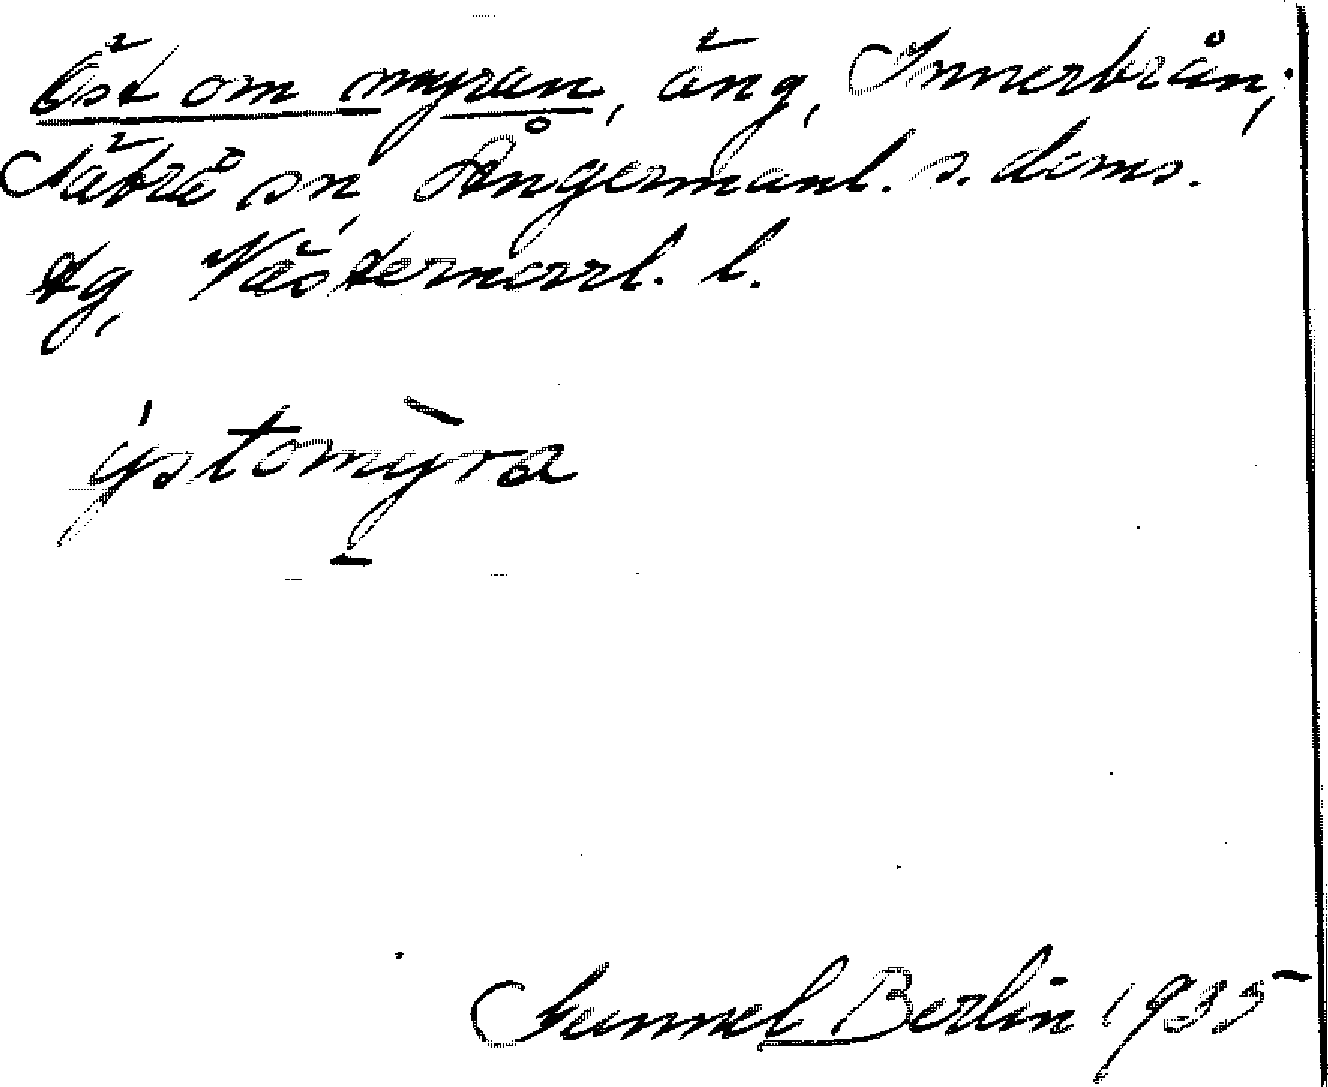 Öst om myran, äng, Innerbrån,
Nätrå sn, Ångermanl. s. doms.
tg, Västernorrl. l.
ýstomỳra
Gunnel Berlin 1935